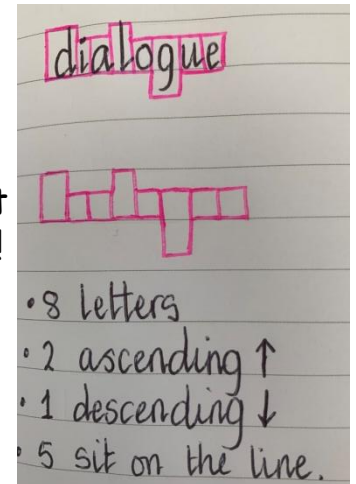 dialogue
• 8 letters
• 2 ascending ↑
• 1 descending ↓
• 5 sit on the line.